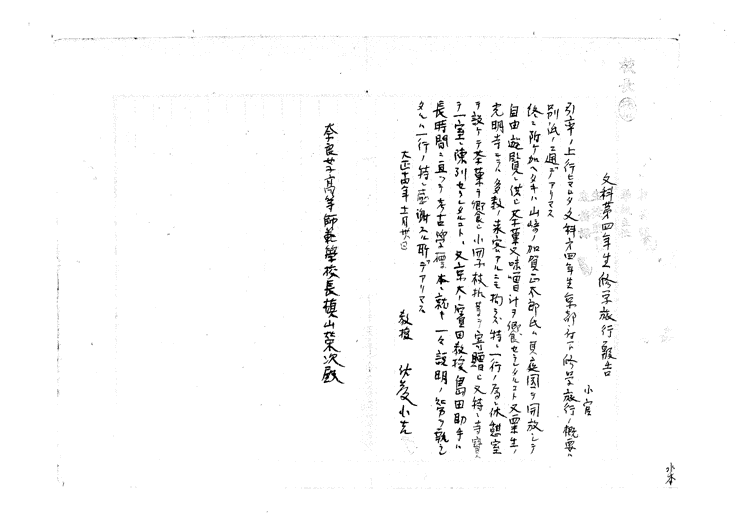 校長
文科第四年生修学旅行報告
小官
引率ノ上行ヒマシタ文科第四年生京都附近修学旅行ノ概要ハ
別紙ノ通デアリマス
終ニ附ケ加ヘタキハ山崎ノ加賀正太郎氏ハ其庭園ヲ開放シテ
自由遊覧ニ供シ茶菓又味噌汁ヲ饗セラレタルコト又粟生ノ
光明寺ニテハ多数ノ来客アルニモ拘ラズ特ニ一行ノ為ニ休憩室
ヲ設ケテ茶菓ヲ饗シ小冊子絵扎等ヲ寄贈シ又特ニ寺宝ヲ
一室ニ陳列セラレタルコト、又京大ノ濱田教授島田助手ハ
長時間ニ亘ツテ考古学標本ニ就キ一々説明ノ労ヲ執ラレ
タルハ一行ノ特ニ感謝スル所デアリマス
大正十四年十一月廿八日
教授
奈良女子高等師範学校長槙山栄次殿